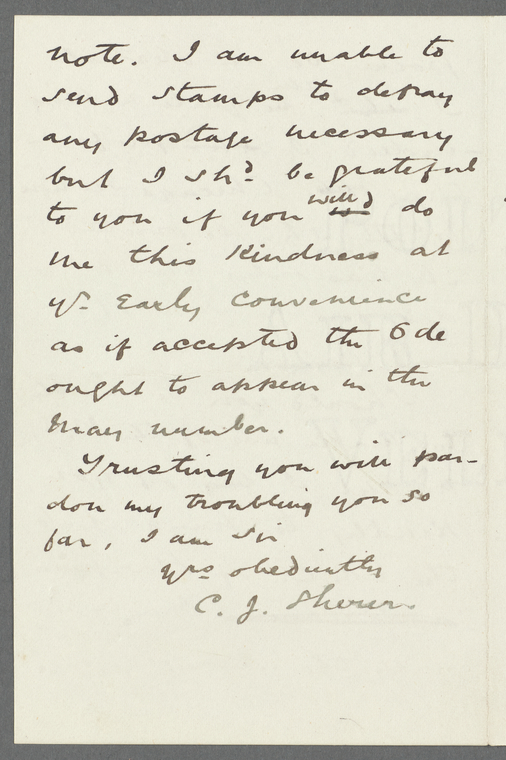 note. I am unable to
send stamps to defray
any postage necessary
but I shd. be grateful
to you if you will do
me this kindness at
yr. Early Convenience
as if accepted the Ode
ought to appear in the
May number.
Trusting you will par-
don my troubling you so
far, I am Sir
yrs obediently
C. J. Sherer.